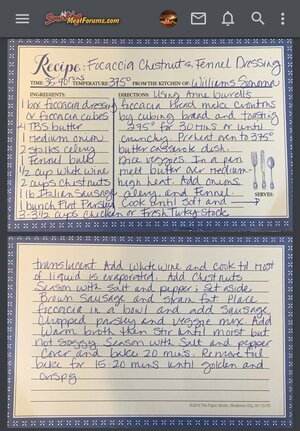 SmokingMeatForums.com
Recipe: Focaccia Chestnut & Fennel Dressing
TIME: 35-40 mins TEMPERATURE 375° FROM THE KITCHEN OF Williams Sonoma
INGREDIENTS:
1 box foccacia dressing
or foccacia cubes
4 TBS butter
1 medium onion
2 stalks celery
Fennel bulb
1/2 cup white wine
2 cups Chestnuts
1 lb Italian Sausage
1 bunch Flat Parsley
3-3 1/2 cups Chicken or Fresh Turkey stock
DIRECTIONS: Using Anne Burrell's
foccacia bread make croutons
by cubing bread and toasting
275° for 30 mins or until
crunchy. Preheat oven to 375°
butter casserole dish.
Dice veggies. In a pan
melt butter over medium-
high heat. Add onions,
celery and fennel.
Cook until soft and →
SERVES:
translucent. Add white wine and cook til most
of liquid is evaporated. Add Chestnuts
Season with salt and pepper, set aside.
Brown Sausage and strain fat. Place
foccacia in a bowl and add sausage
Chopped parsley and veggie mix. Add
warm broth then stir until moist but
not soggy. Season with Salt and pepper
Cover and bake 20 mins. Remove foil
bake for 15-20 mins until golden and
crispy